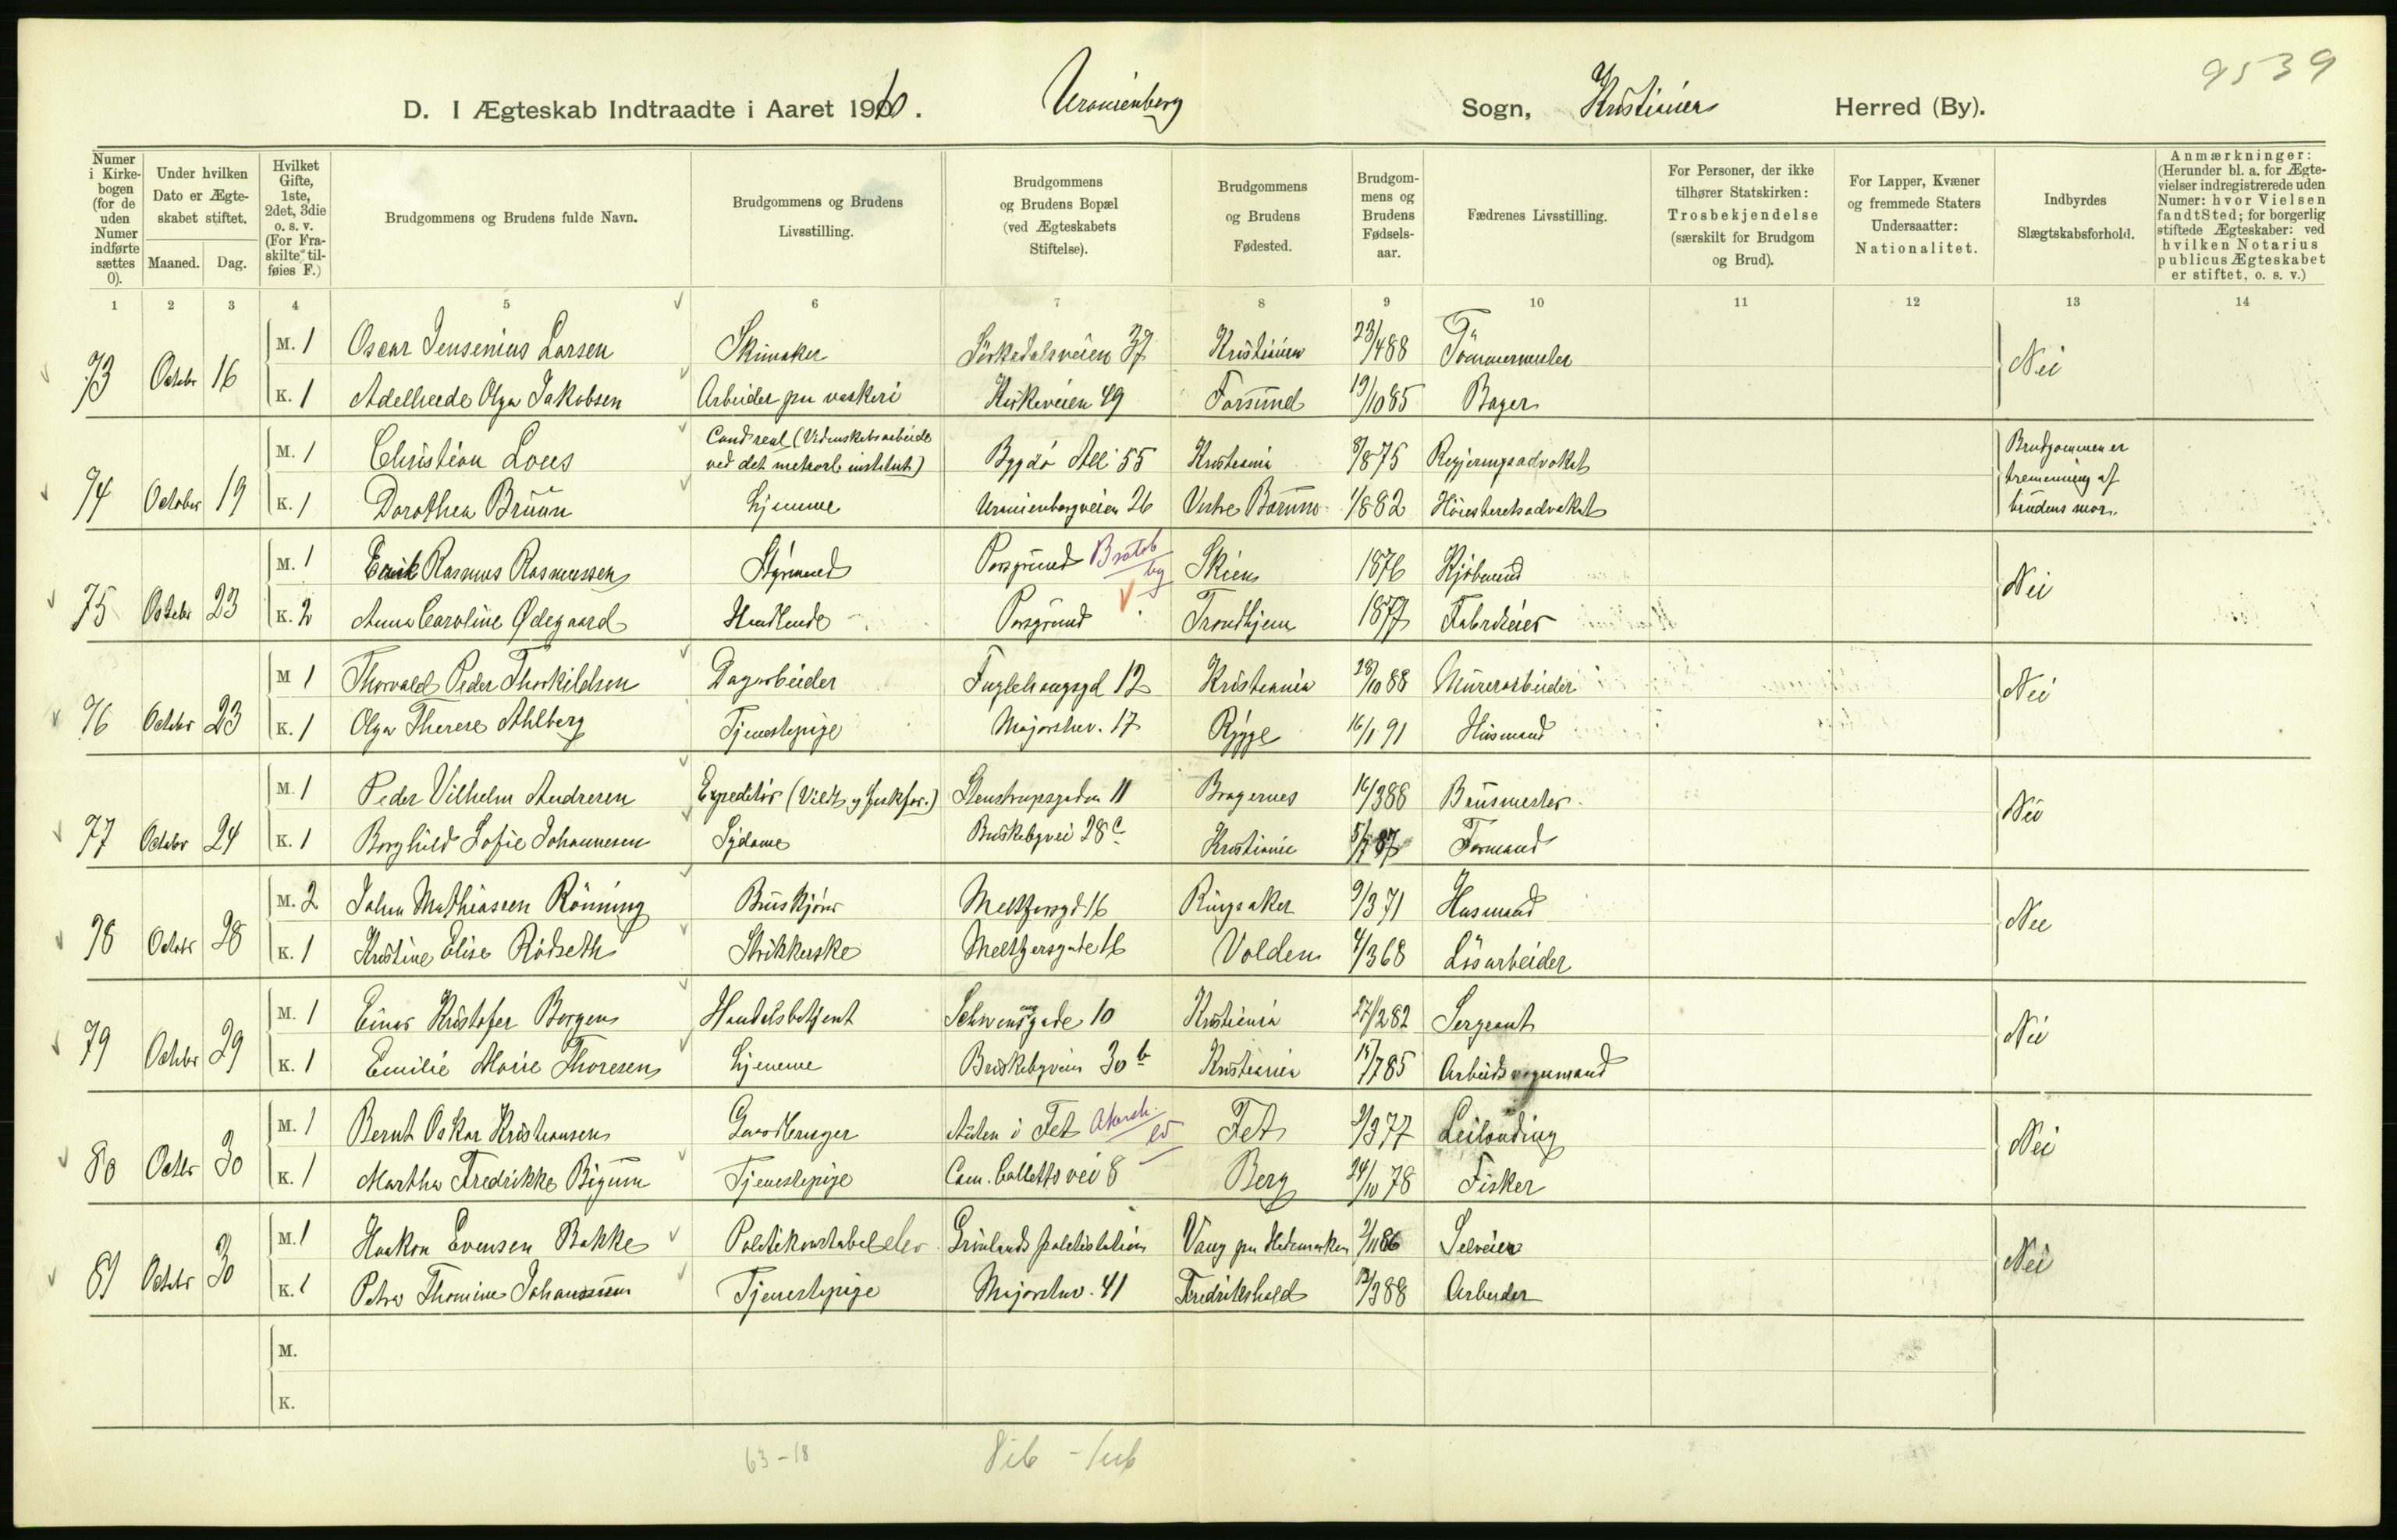 9539
D. I Ægteskab Indtraadte i Aaret 1910. Uranienborg Sogn, Kristiania Herred (By).
Numer i Kirkebogen (for de uden Numer indførte sættes 0).
Under hvilken Dato er Ægteskabet stiftet.
Maaned. Dag.
Hvilket Gifte, 1ste, 2det, 3die o. s. v. (For Fraskilte tilføies F.)
Brudgommens og Brudens fulde Navn.
Brudgommens og Brudens Livsstilling.
Brudgommens og Brudens Bopæl (ved Ægteskabets Stiftelse).
Brudgommens og Brudens Fødested.
Brudgommens og Brudens Fødselsaar.
Fædrenes Livsstilling.
For Personer, der ikke tilhører Statskirken: Trosbekjendelse (særskilt for Brudgom og Brud).
For Lapper, Kvæner og fremmede Staters Undersaatter: Nationalitet.
Indbyrdes Slægtskabsforhold.
Anmærkninger: (Herunder bl. a. for Ægtevielser indregistrerede uden Numer: hvor Vielsen fandt Sted; for borgerlig stiftede Ægteskaber: ved hvilken Notarius publicus Ægteskabet er stiftet, o. s. v.)
1 2 3 4 5 6 7 8 9 10 11 12 13 14
73 Octobr 16 M. 1 Oscar Jensenius Larsen Skimaker Sörkedalsveien 37 Kristiania 23/4 88 Tömmermester Nei
K. 1 Adelheide Olga Jakobsen Arbeider paa vaskeri Kirkeveien 49 Farsund 19/10 85 Bager
74 October 19 M. 1 Christian Lous Cand real (Videnskabsarbeide ved det meteorl. institut) Bygdö Allé 55 Kristiania 8/8 75 Regjeringsadvokat Brudgommen er tremenning af brudens mor.
K. 1 Dorothea Bruun hjemme Uranienborgveien 26 Vestre Bærum 1/8 82 Höiesteretsadvokat
75 Octobr 23 M. 1 Erik Rasmus Rasmussen Styrmand Porsgrund Bratsb by Skien 1876 Kjöbmand Nei
K. 2 Anna Caroline Ødegaard Handlende Porsgrund Trondhjem 1877 Fabrikeier
76 Octobr 23 M 1 Thorvald Peder Thorkildsen Dagarbeider Fuglehaugsgd 12 Kristiania 28/10 88 Murerarbeider Nei
K. 1 Olga Therese Ahlberg Tjenestepige Majorstuv. 17 Rygge 16/1 91 Husmand
77 Octobr 24 M. 1 Peder Vilhelm Andresen Expeditör (Vildt og fiskfor.) Stenstrupsgaden 11 Bragernes 16/3 88 Brusmester Nei
K. 1 Borghild Sofie Johannesen Sydame Briskebyvei 28 c Kristiania 5/7 87 Formand
78 Octobr 28 M. 2 Johan Mathiassen Rönning Bruskjörer Meltzersgd 16 Ringsaker 9/3 71 Husmand Nei
K. 1 Kristine Elise Rödseth Strikkerske Meltzersgade 16 Volden 4/3 68 Lösarbeider
79 Octobr 29 M. 1 Einar Kristofer Borgen Handelsbetjent Schwensensgade 10 Kristiania 27/2 82 Sergeant Nei
K. 1 Emilie Marie Thoresen hjemme Briskebyveien 30 b Kristiania 15/7 85 Arbeidsvognmand
80 Octbr 30 M. 1 Bernt Oskar Kristiansen Gaardbruger i Fet Akersh. Fet 2/3 77 Leilending Nei
K. 1 Martha Fredrikke Bigum Tjenestepige Cam. Colletts vei 8 Berg 24/10 78 Fisker
81 Octobr 30 M. 1 Haakon Evensen Bakke Politikonstabelelev Grönlands politistation Vang paa Hedemarken 2/11 86 Selveier Nei
K. 1 Petra Thomine Johansen Tjenestepige Majorstuv. 41 Fredrikshald 12/3 88 Arbeider
M.
K.
63-18